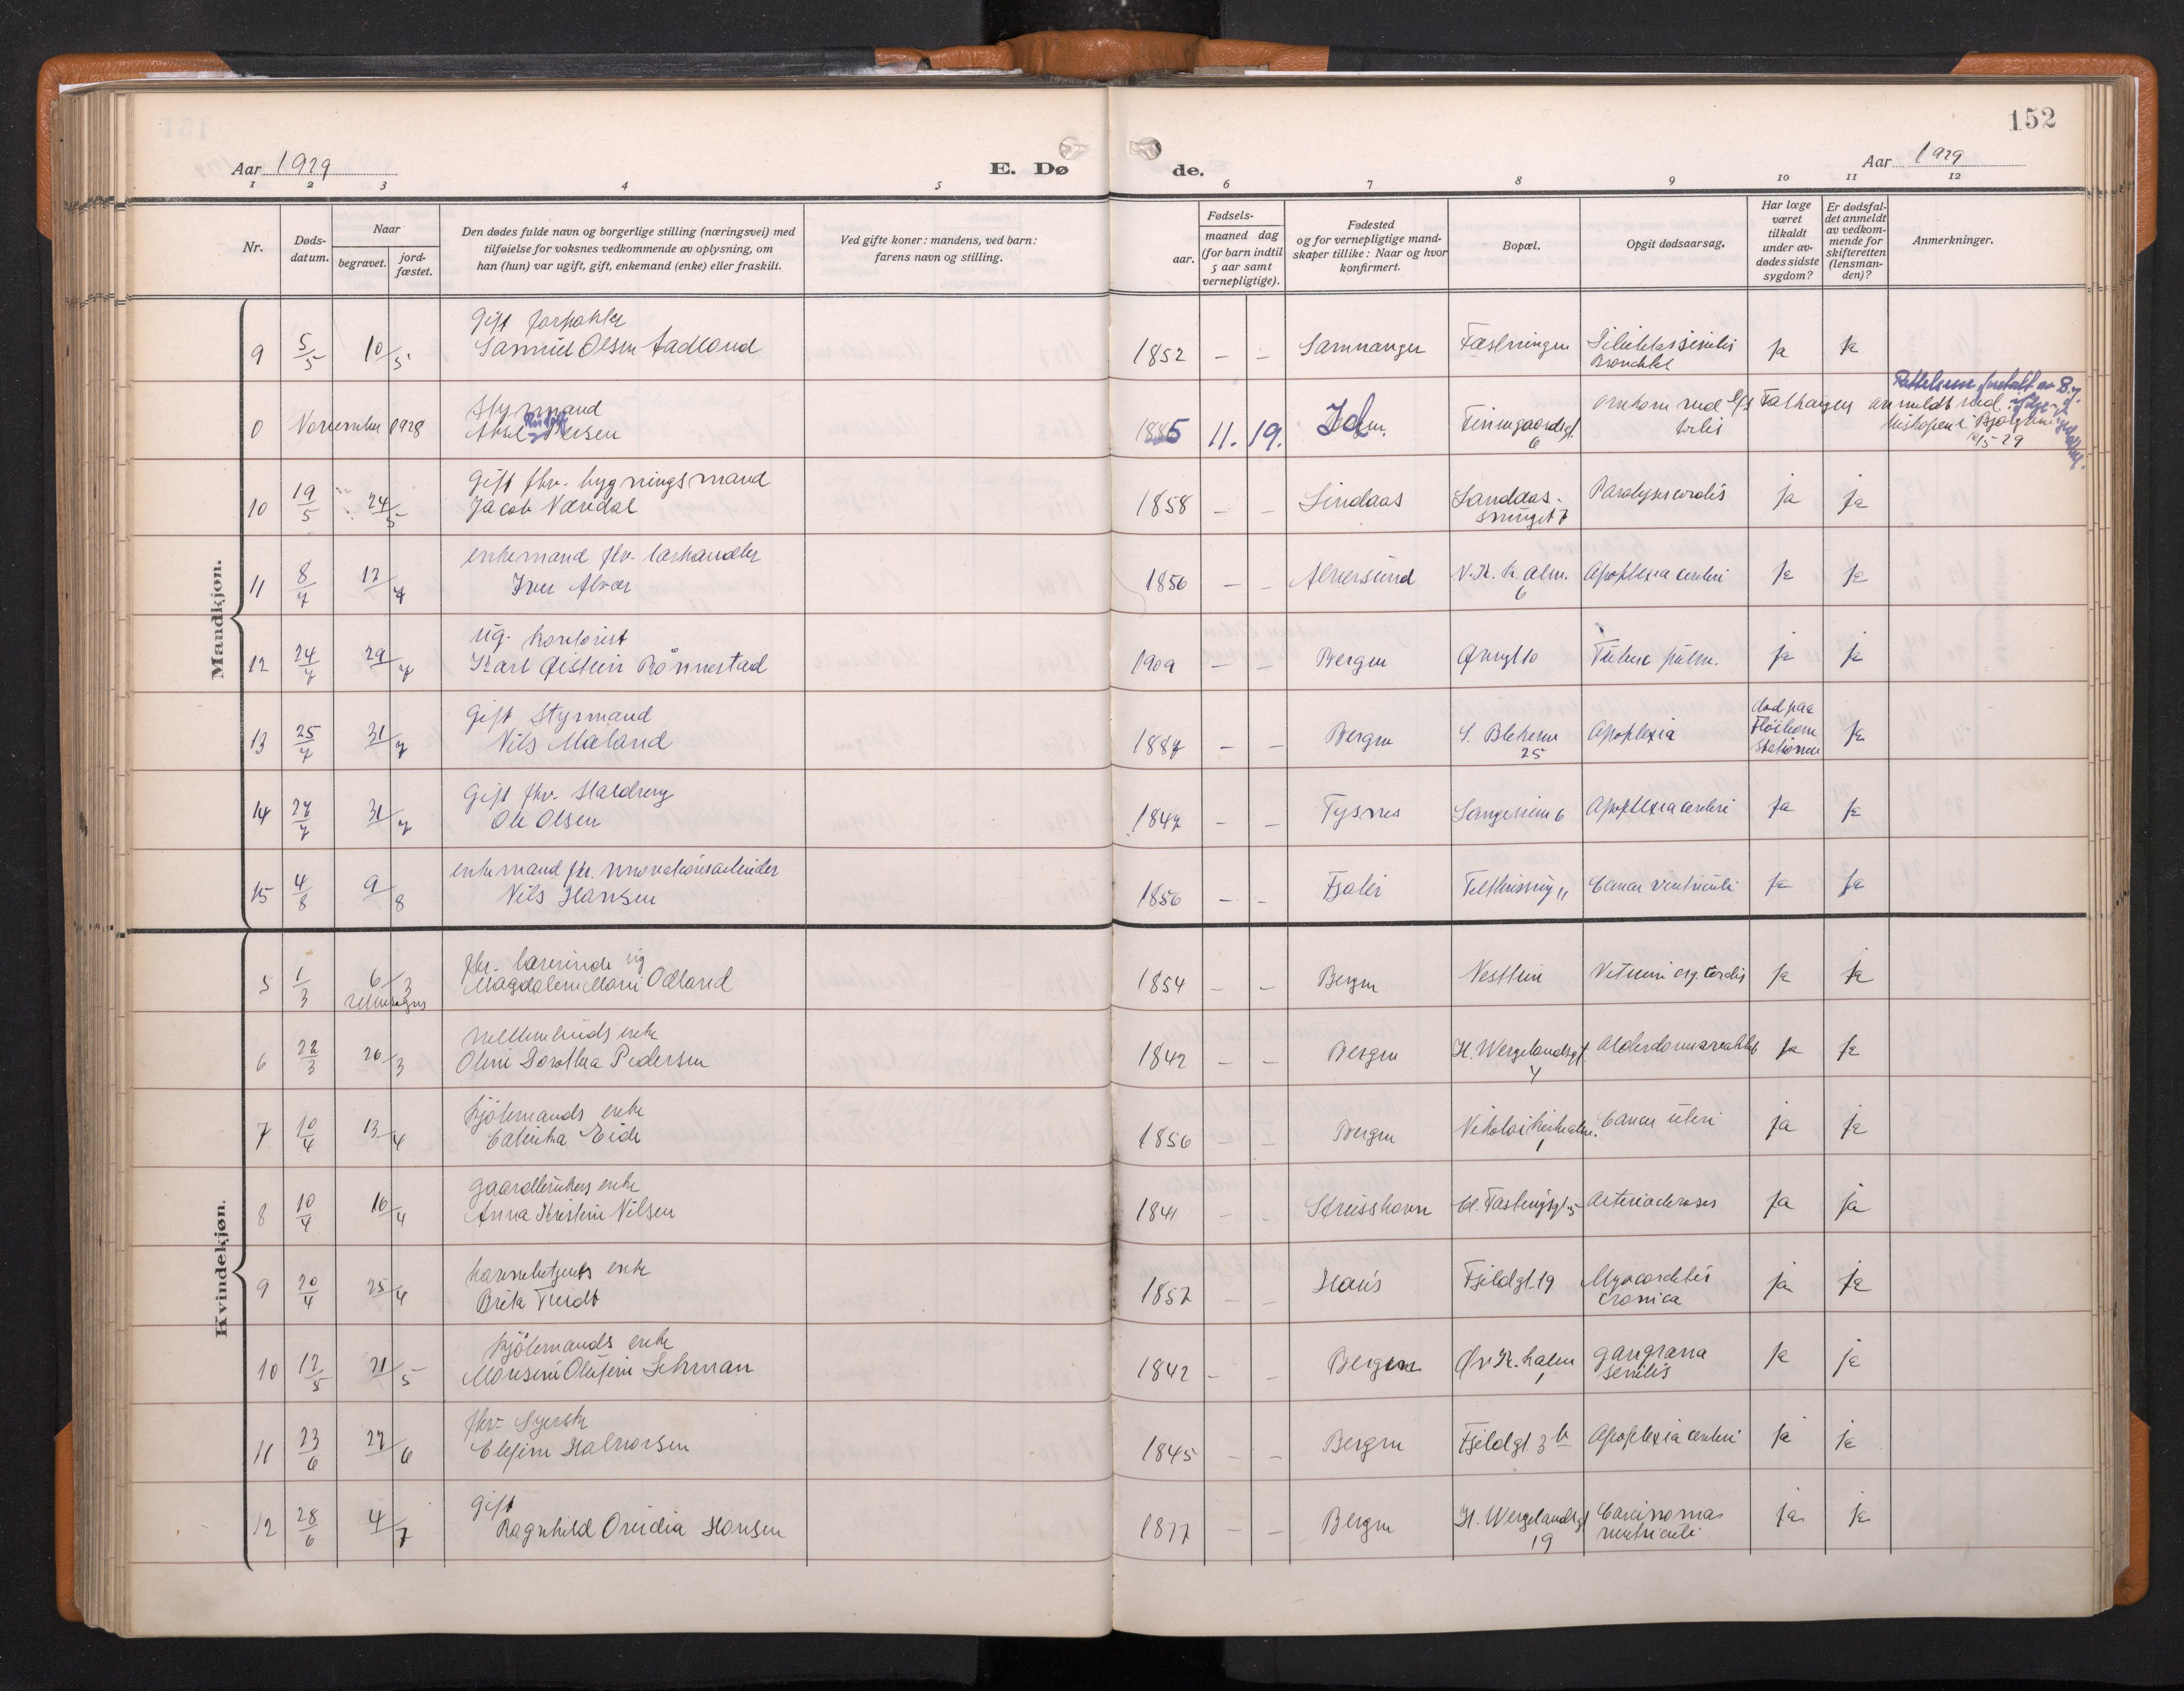 152
Aar 1929
E. Dø de.
Aar 1929
1 2 3 4 5 6 7 8 9 10 11 12
Nr.
Døds-
datum.
Naar
begravet.
jord-
fæstet.
Den dødes fulde navn og borgerlige stilling (næringsvei) med
tilføielse for voksnes vedkommende av oplysning, om
han (hun) var ugift, gift, enkemand (enke) eller fraskilt.
Ved gifte koner: mandens, ved barn:
farens navn og stilling.
Fødsels-
aar.
maaned dag
(for barn indtil
5 aar samt
vernepligtige).
Fødested
og for vernepligtige mand-
skaper tillike: Naar og hvor
konfirmert.
Bopæl.
Opgit dødsaarsag.
Har læge
været
tilkaldt
under av-
dødes sidste
sygdom?
Er dødsfal-
det anmeldt
av vedkom-
mende for
skifteretten
(lensman-
den)?
Anmerkninger.
Mandkjøn.
Gift forpakter
9 5/5 10/5 Samuel Olsen Aadland 1852 – – Samnanger Fæstningen senilis Ja Ja
Bronchit
Styrmand
0 November 1928 1885 11. 19. omkom med anmeldt ved
6
15-29
Gift fhv. bygningsmand
10 19/5 24/5 Jacob Næsdal 1858 – – Lindaas Landaas- Paralysis cordis ja ja
smuget 7
enkemand fhv.
11 8/7 12/7 Iver Alvær 1856 – – Alversund V. K. k. alm. Apoplexia cerebri Ja Ja
6
ug. kontorist
12 24/7 29/7 Karl Øistein Rönnestad 1909 – – Bergen Tuberc pulm. ja ja
Gift Styrmand død paa
13 25/7 31/7 Nils Maland 1887 – – Bergen Apoplexia Flöibane Ja
25 stationen
Gift fhv.
14 27/7 31/7 Ole Olsen 1847 – – Tysnes 6 Apoplexia cerebri Ja Ja
enkemand fhv. renovationsarbeider
15 4/8 9/8 Nils Hansen 1856 – – Fjaler 11 Cancer ventriculi Ja Ja
Kvindekjøn.
fhv. lærerinde ug
5 1/3 6/3 Magdalene Marie Odland 1854 – – Bergen Nesttun Vitium org. cordis Ja Ja
enke
6 22/3 26/3 Oline Dorothea Pedersen 1842 – – Bergen H. Wergelandsgt. Alderdomssvakhet Ja Ja
4
kjölemands enke
7 10/4 13/4 Cathinka Eide 1856 – – Bergen Nikolaikirkealm. Cancer uteri ja ja
1
gaardbrukers enke
8 10/4 16/4 Anna Kristine Nilsen 1841 – – Strusshavn 5 Arteriosclerosis Ja ja
havnebetjents enke
9 20/4 25/4 Brita Tvedt 1857 – – Haus Fjeldgt. 19 Myocarditis ja ja
cronica
kjölemands enke
10 17/5 21/5 Monsine Olufine Lehman 1842 – – Bergen Øv K. kalm gangræna Ja ja
1 senilis
fhv. Syerske
11 23/6 27/6 Elefine Halvorsen 1845 – – Bergen Fjeldgt. 3 b Apoplexia cerebri Ja ja
gift
12 28/6 4/7 Ragnhild Ovidia Hansen 1877 – – Bergen H. Wergelandsgt Carcinomas ja ja
19 ventriculi